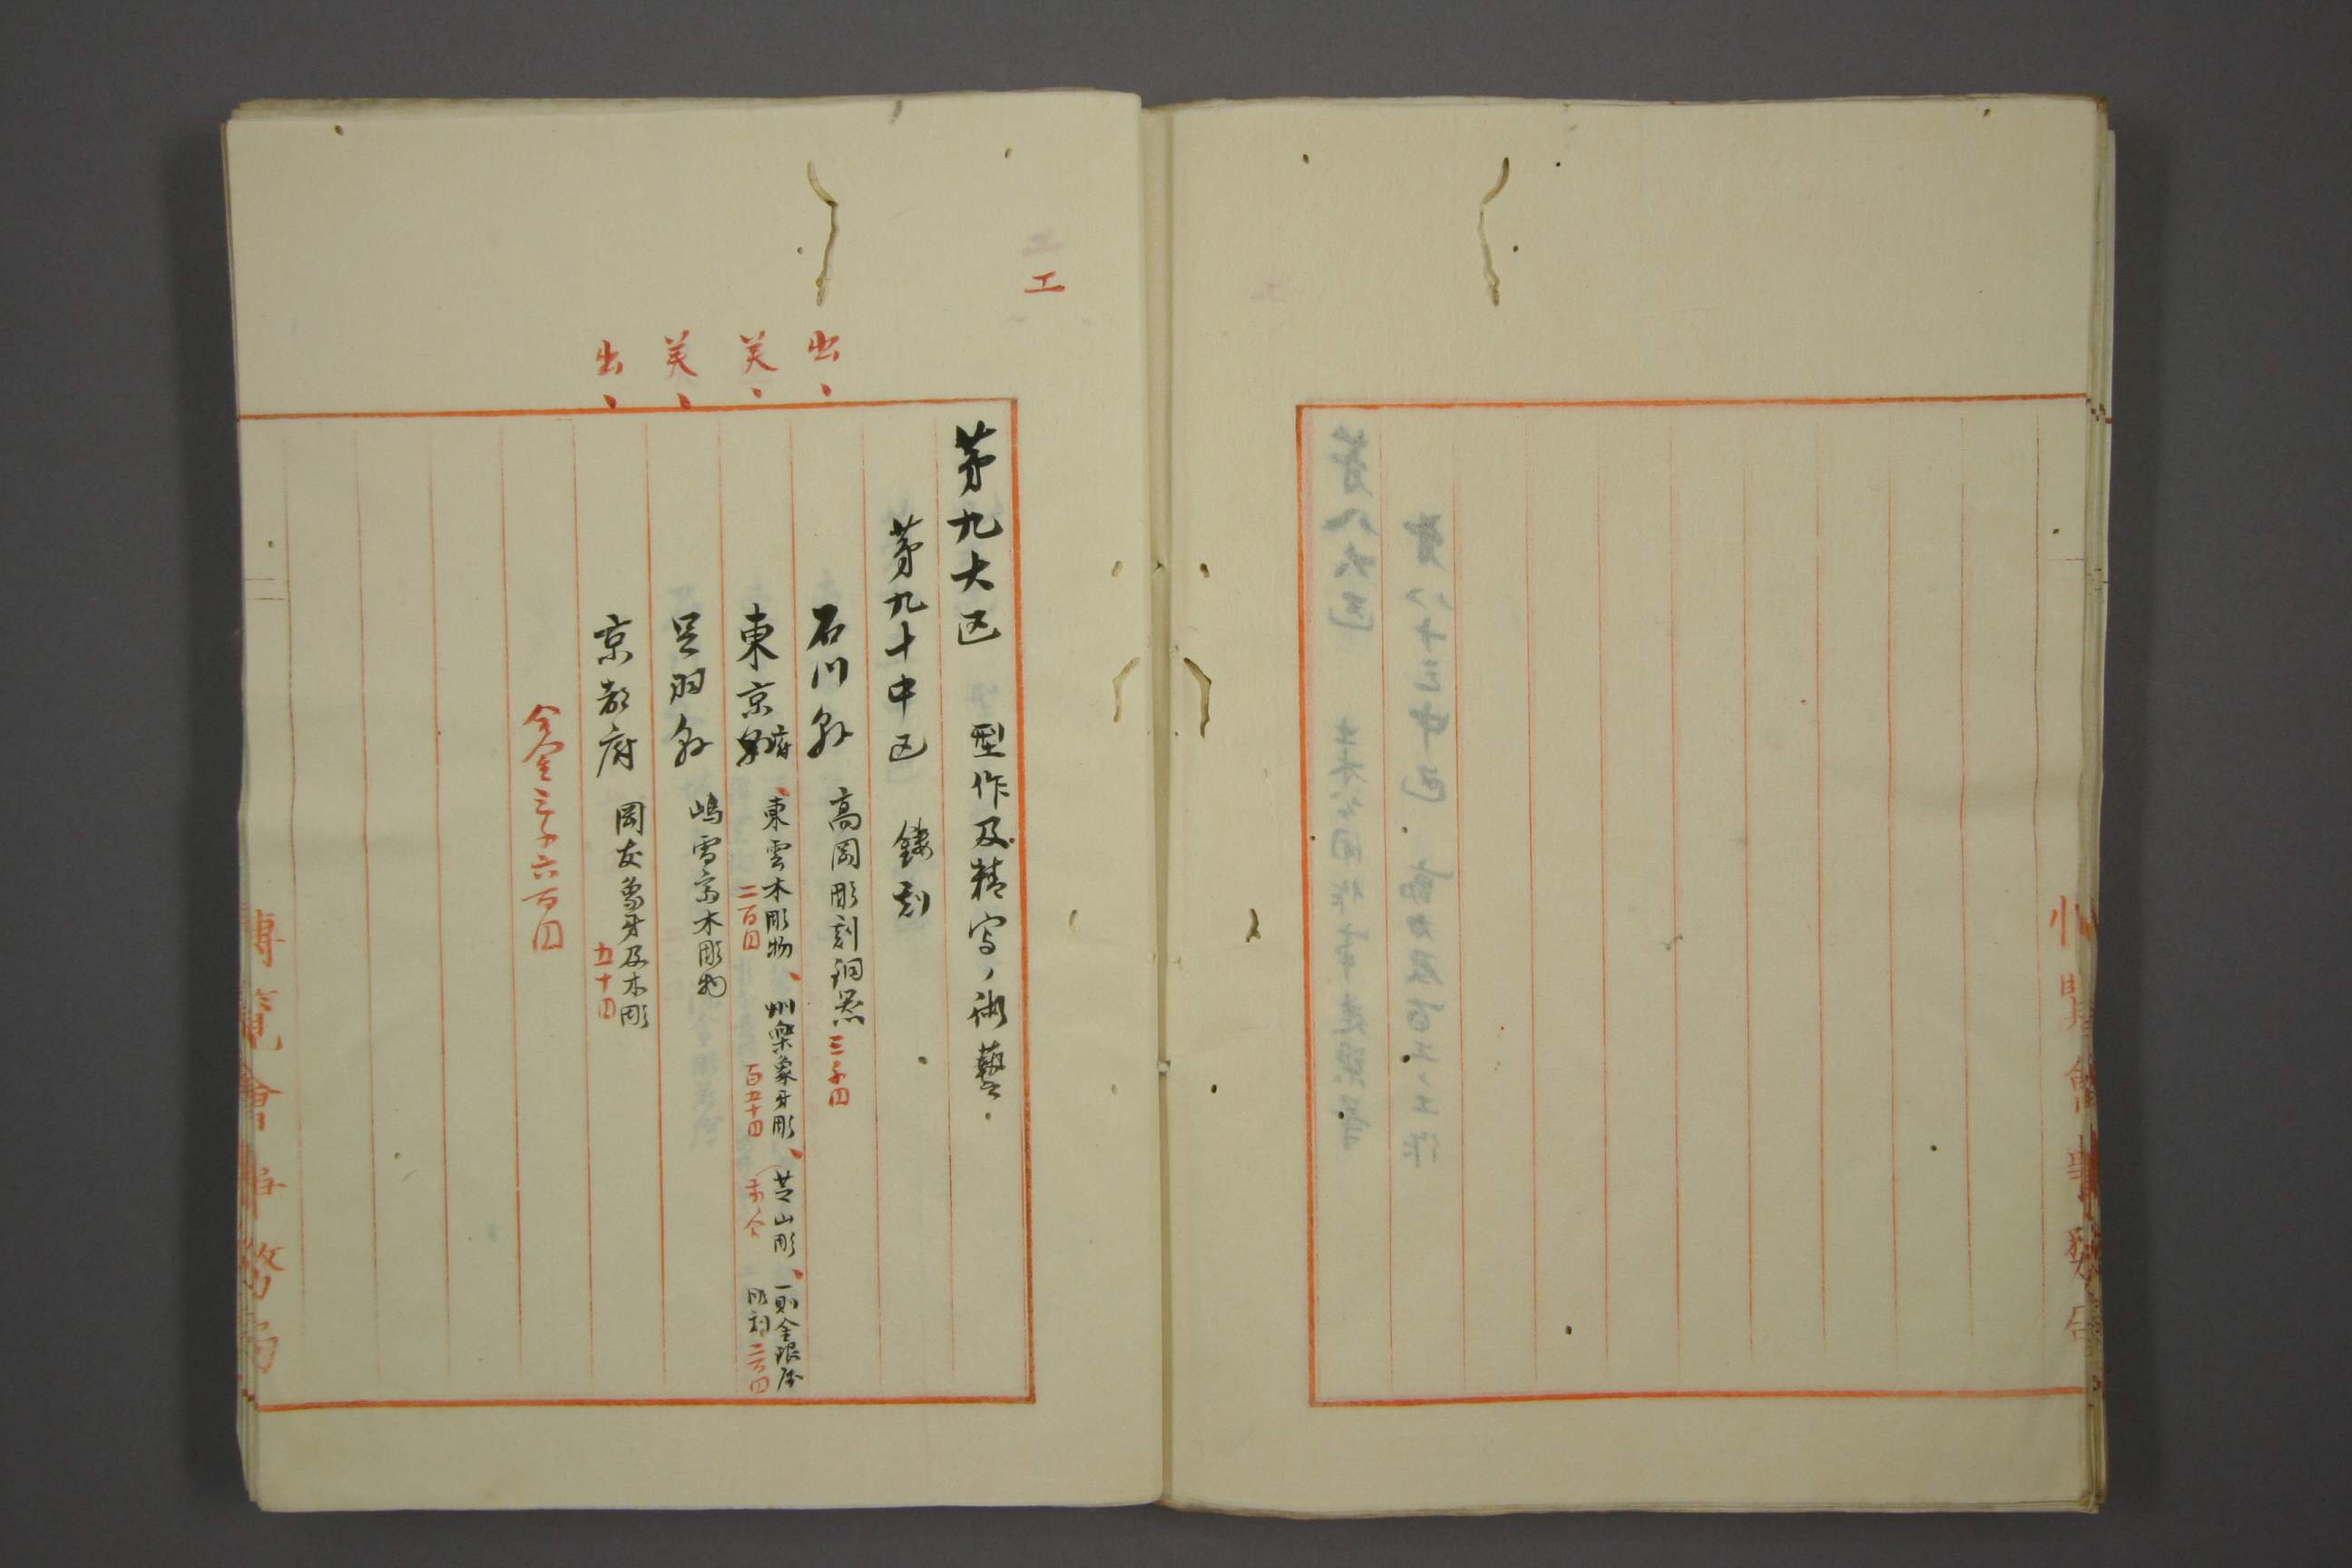 工
第九大区 型作及精写ノ術藝
第九十中区 鏤刻
出、 石川縣 高岡彫刻銅器 三千円
美、 東京府 、東雲木彫物 二百円 、州樂象牙彫 百五十円 、芝山彫 、一則金銀属彫刻 二百円
美、 足羽縣 嶋雪斎木彫物
出、 京都府 岡友象牙及木彫 五十円
金三千六百円
博覧會事務局